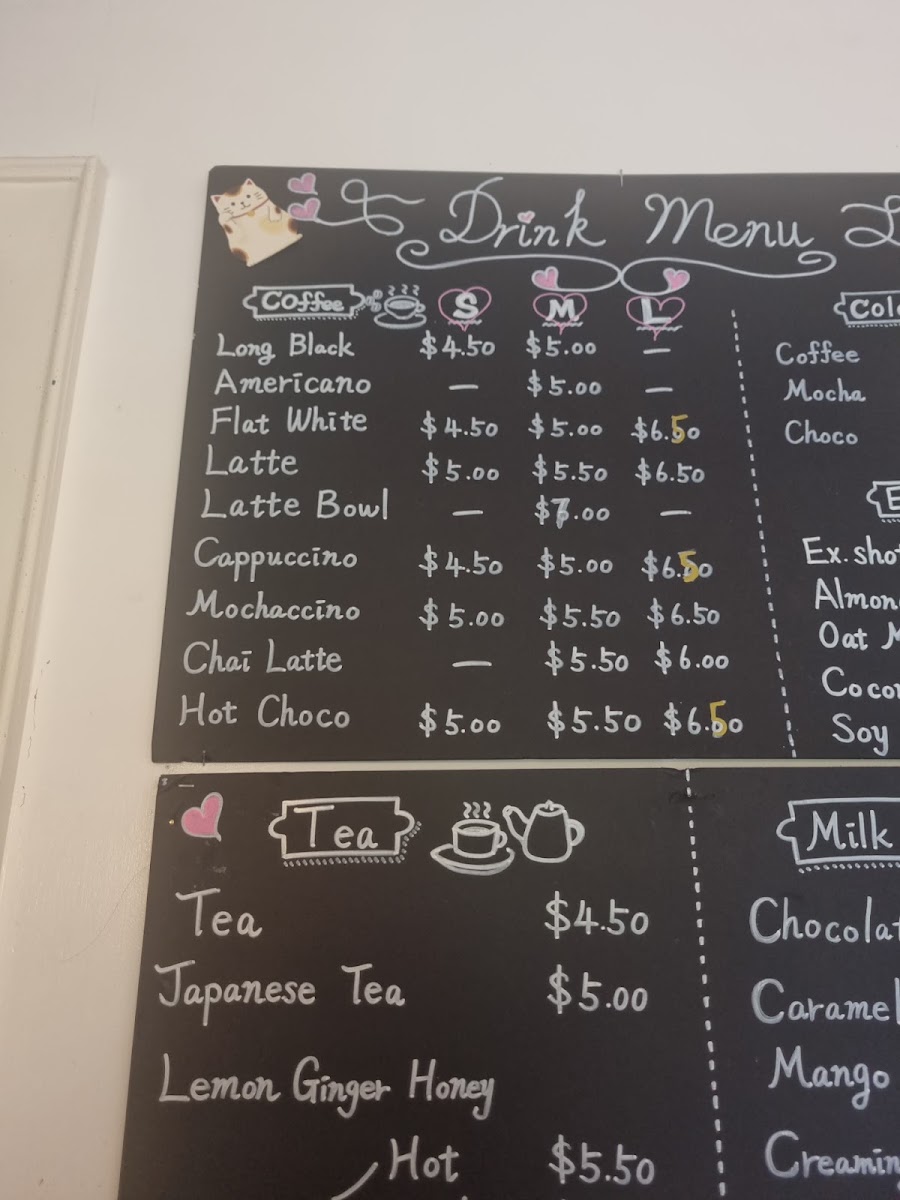 Drink Menu
Coffee S M L
Long Black $4.50 $5.00 —
Americano — $5.00 —
Flat White $4.50 $5.00 $6.50
Latte $5.00 $5.50 $6.50
Latte Bowl — $7.00 —
Cappuccino $4.50 $5.00 $6.50
Mochaccino $5.00 $5.50 $6.50
Chai Latte — $5.50 $6.00
Hot Choco $5.00 $5.50 $6.50
Col
Coffee
Mocha
Choco
E
Ex. sho
Almon
Oat M
Coco
Soy
Tea
Tea $4.50
Japanese Tea $5.00
Lemon Ginger Honey
Hot $5.50
Milk
Chocola
Caramel
Mango
Creamin